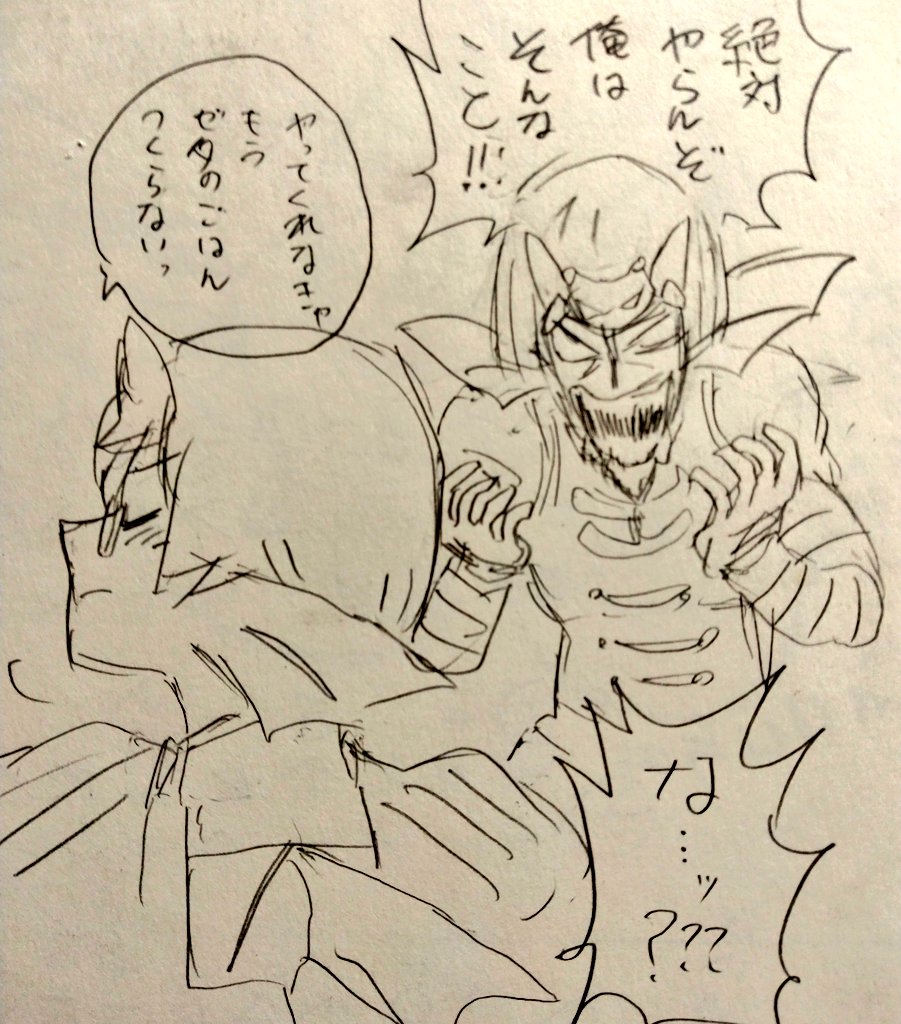 絶対
やらんぞ
俺は
そんな
こと!!!
やってくれなきゃ
もう
ゼタのごはん
つくらないっ
な…ッ
????